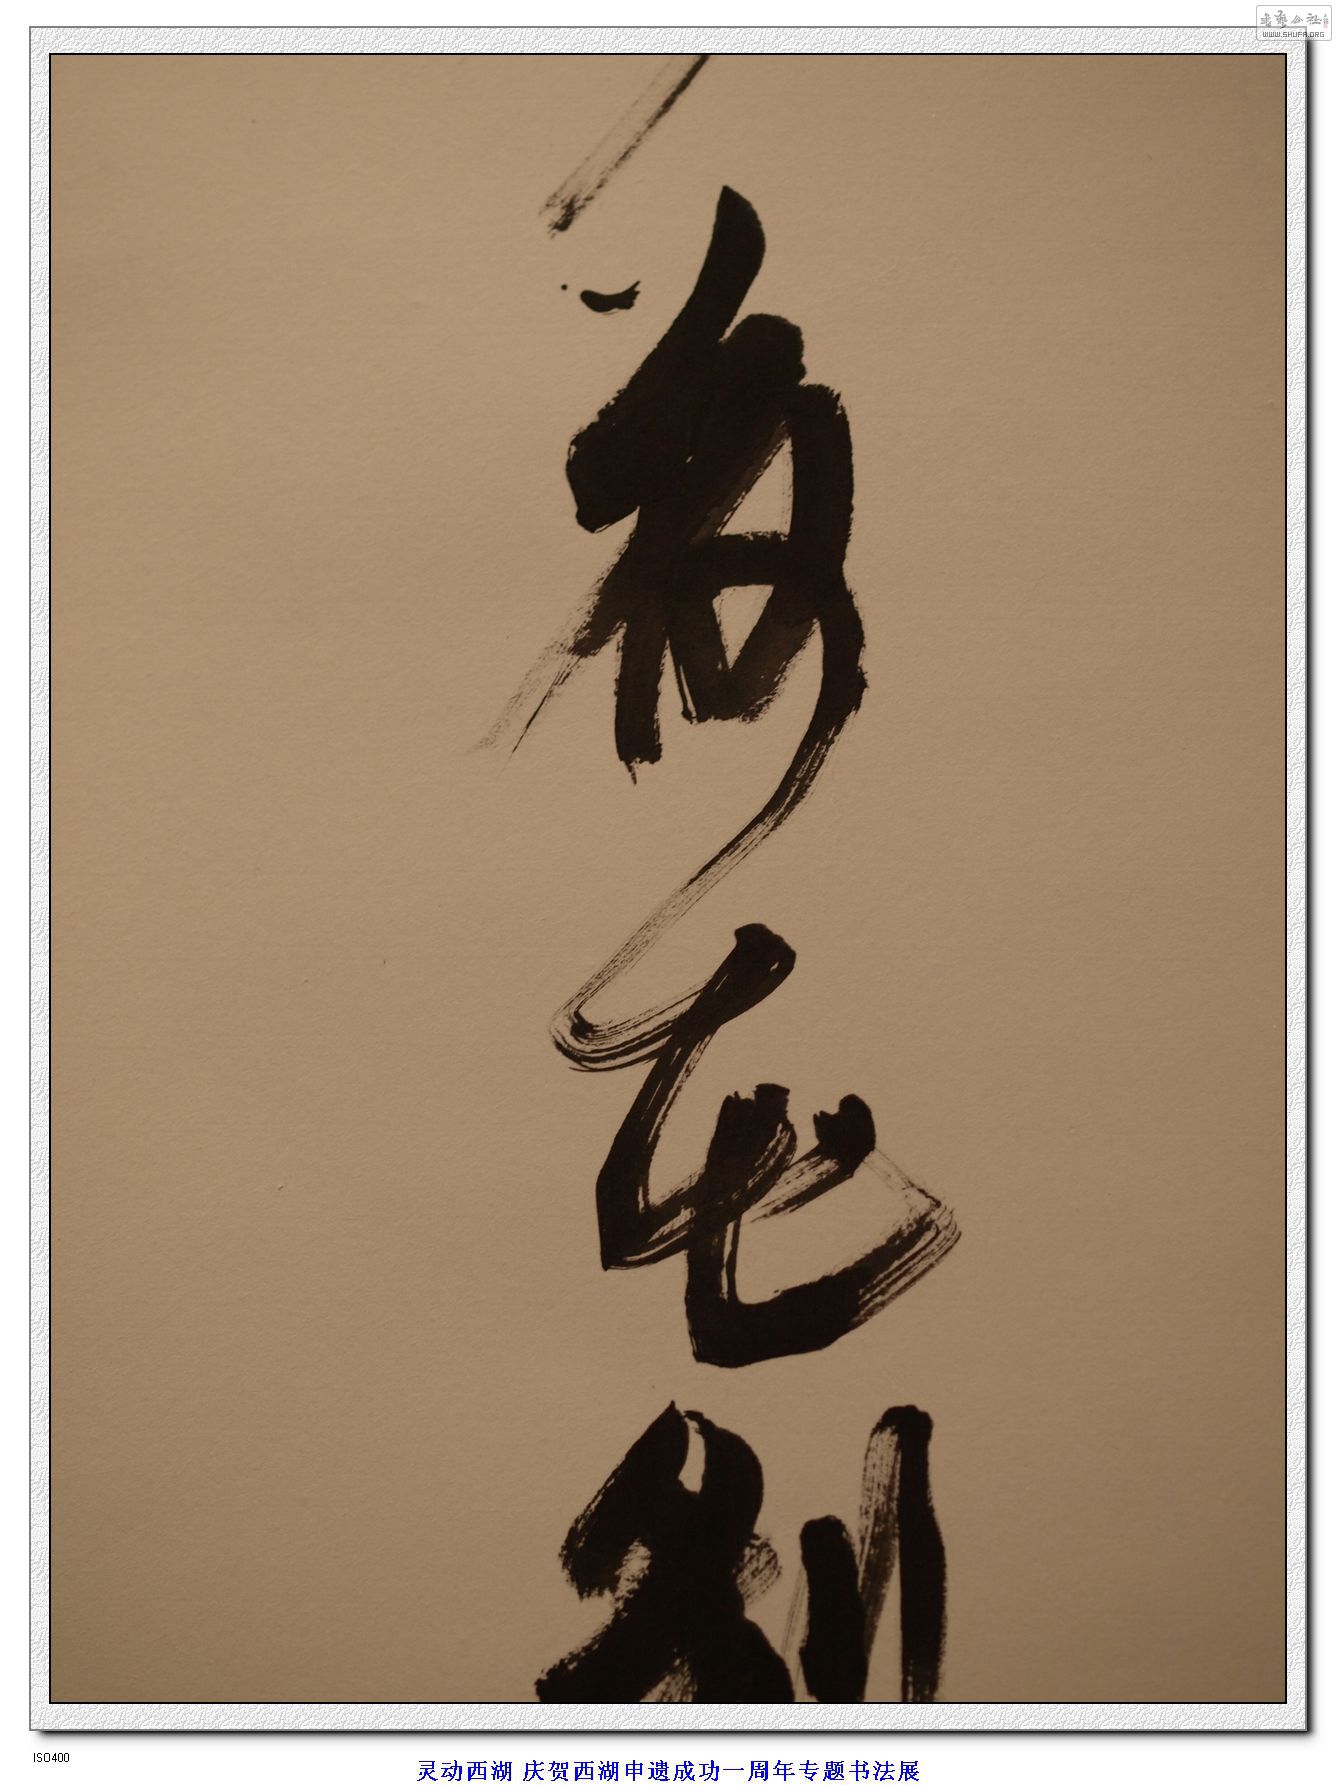 书艺公社
WWW.SHUFA.ORG
荷花别
ISO400
灵动西湖 庆贺西湖申遗成功一周年专题书法展